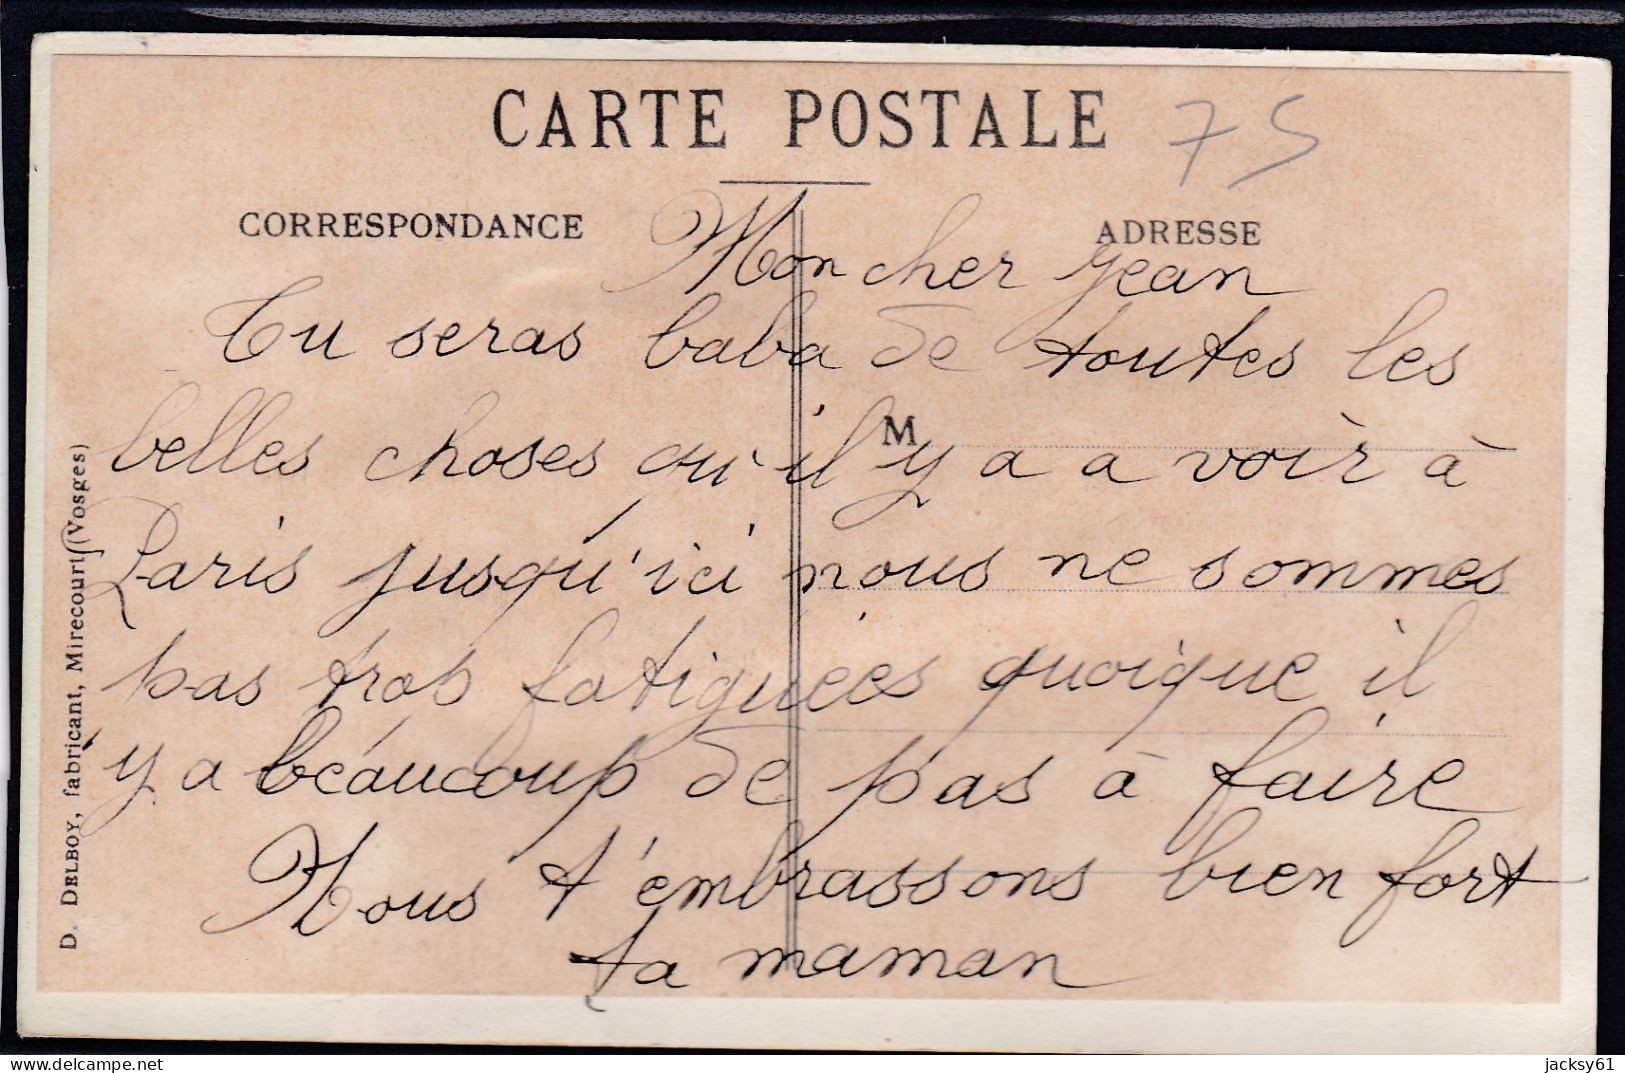 CARTE POSTALE
75
CORRESPONDANCE
ADRESSE
Mon cher Jean
Tu seras baba de toutes les
belles choses qu'il y a a voir à
M
Paris jusqu'ici nous ne sommes
pas trop fatiguées quoique il
y a beaucoup de pas à faire
Nous t'embrassons bien fort
ta maman
D. DELBOY, fabricant, Mirecourt (Vosges)
delcampe.net
jacksy61